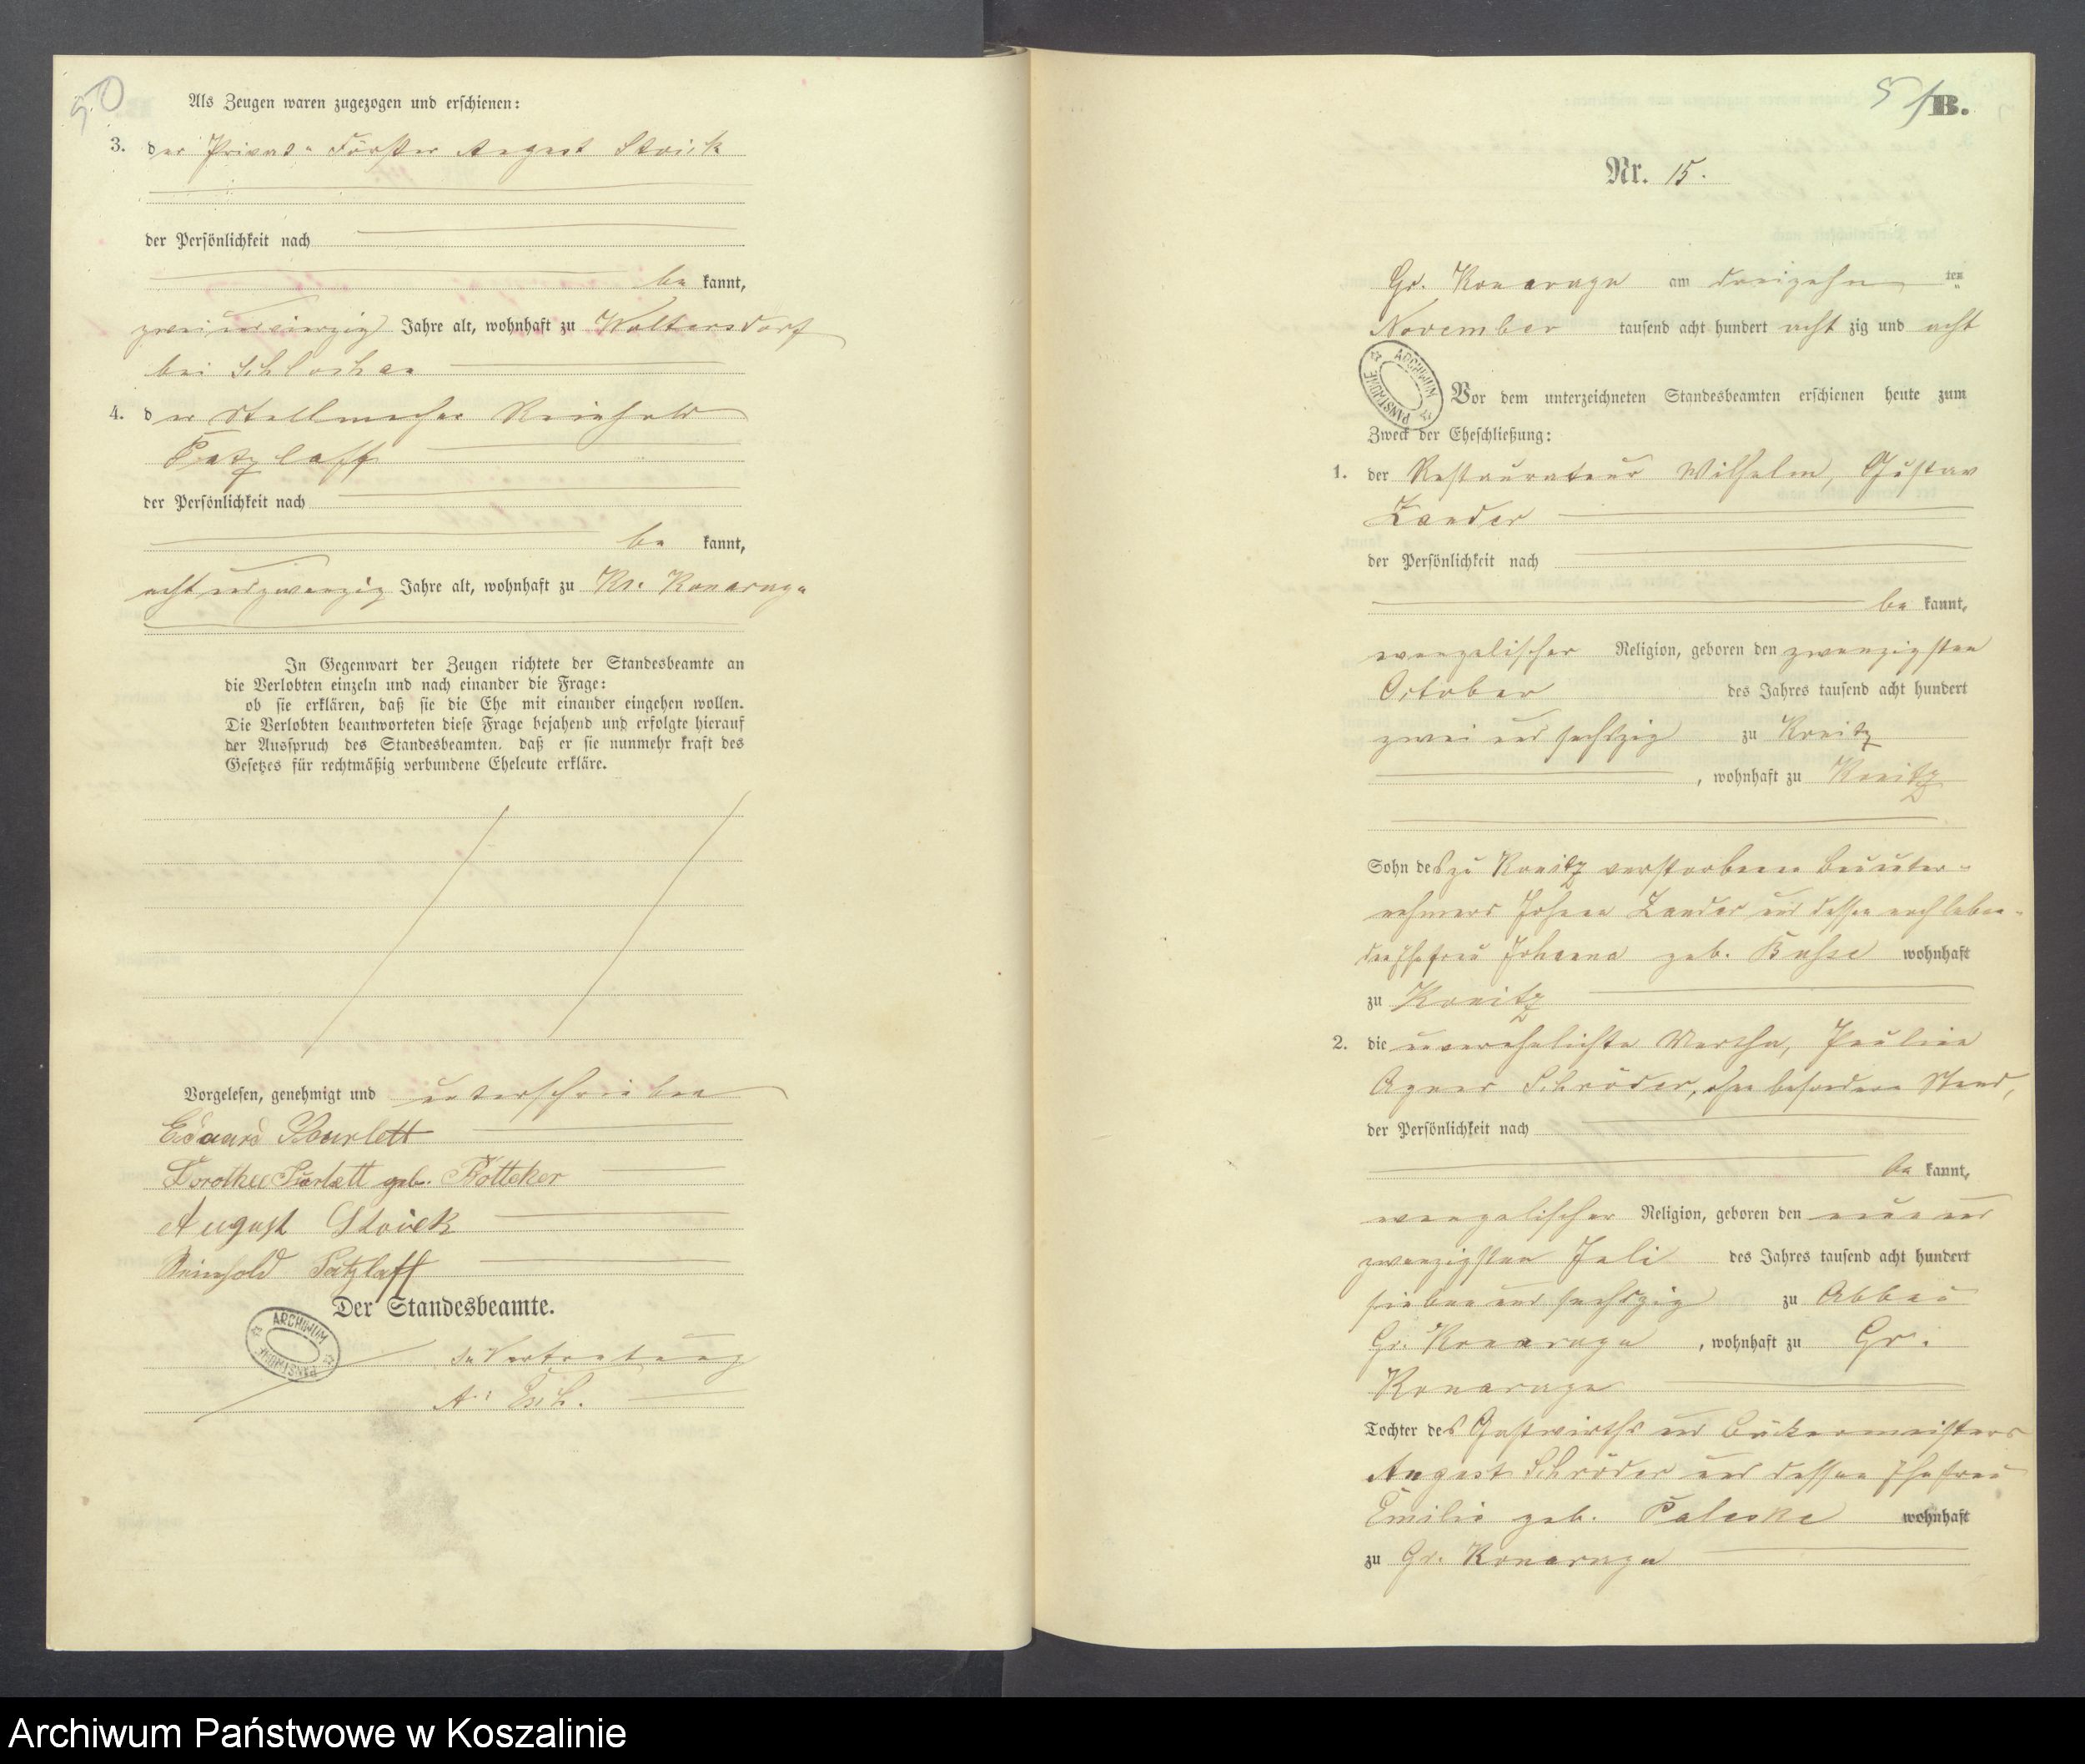 50
Als Zeugen waren zugezogen und erschienen:
3. der Privat-Förster August Stoick
der Persönlichkeit nach
be kannt,
zweiundvierzig Jahre alt, wohnhaft zu Woltersdorf
bei Schlochau
4. der Stellmacher Reinhold
Patzlaff
der Persönlichkeit nach
be kannt,
achtundzwanzig Jahre alt, wohnhaft zu Kl. Konarzyn
In Gegenwart der Zeugen richtete der Standesbeamte an
die Verlobten einzeln und nach einander die Frage:
ob sie erklären, daß sie die Ehe mit einander eingehen wollen.
Die Verlobten beantworteten diese Frage bejahend und erfolgte hierauf
der Ausspruch des Standesbeamten, daß er sie nunmehr kraft des
Gesetzes für rechtmäßig verbundene Eheleute erkläre.
Vorgelesen, genehmigt und unterschrieben
Eduard
Dorothee geb.
August Stoick
Reinhold Patzlaff
Der Standesbeamte.
ARCHIWUM PAŃSTWOWE
In Vertretung
A.
51
B.
Nr. 15.
Gr. Konarzyn am dreizehn ten
November tausend acht hundert acht zig und acht
ARCHIWUM PAŃSTWOWE
Vor dem unterzeichneten Standesbeamten erschienen heute zum
Zweck der Eheschließung:
1. der Restaurateur Wilhelm, Gustav
Zander
der Persönlichkeit nach
be kannt,
evangelischer Religion, geboren den zwanzigsten
October des Jahres tausend acht hundert
zwei und sechszig zu Konitz
, wohnhaft zu Konitz
Sohn des zu Konitz verstorbenen Bauunter-
nehmers Johann Zander und dessen nachleben-
den Ehefrau Johanna geb. Buhse wohnhaft
zu Konitz
2. die unverehelichte Martha, Pauline
Agnes Schröder, ohne besonderen Stand,
der Persönlichkeit nach
be kannt,
evangelischer Religion, geboren den neunund
zwanzigsten Juli des Jahres tausend acht hundert
siebenundsechszig zu Abbau
Gr. Konarzyn, wohnhaft zu Gr.
Konarzyn
Tochter des Gastwirths und Bäckermeisters
August Schröder und dessen Ehefrau
Emilie geb. Paleske wohnhaft
zu Gr. Konarzyn
Archiwum Państwowe w Koszalinie